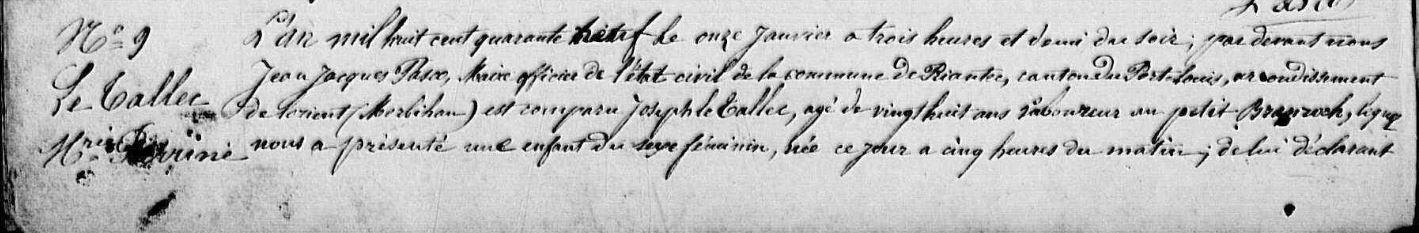 N° 9
Le Tallec
M.rie
L'an mil huit cent quarante neuf le onze Janvier a trois heures et demi du soir; par devant nous
Jean Jacques Pasco, Maire officier de l'état civil de la commune de Riantec, canton du Port-Louis, arrondissement
de Lorient (Morbihan) est comparu Joseph le Tallec, agé de vingt huit ans laboureur au petit lequel
nous a présenté une enfant du sexe féminin, née ce jour a cinq heures du matin; de lui déclarant